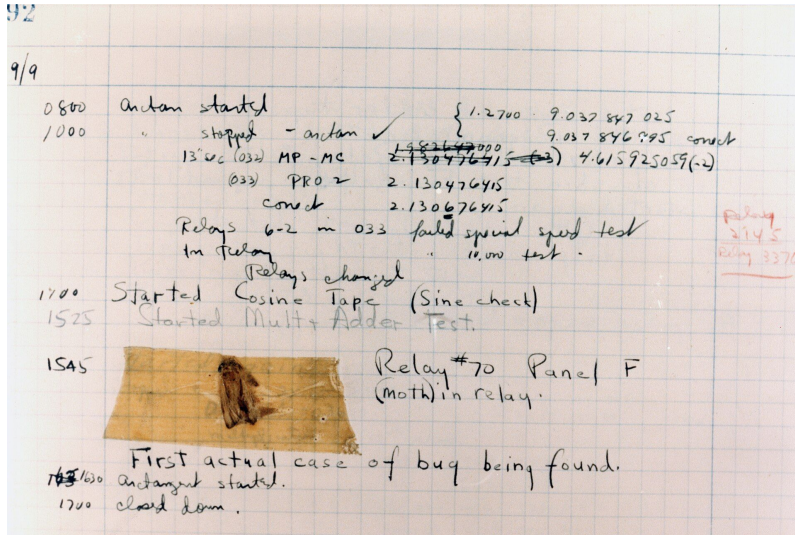 92
9/9
0800 arctan started { 1.2700 9.037 847 025
1000 " stopped - arctan ✓ 9.037 846 995 conect
13"uc (032) MP - MC 1.982647000 2.130476415 (-3) 4.615925059(-2)
(033) PRO 2 2.130476415
conect 2.130676415
Relays 6-2 in 033 failed special speed test
In Relay " 10,000 test.
Relay
2145
Relay 3370
Relays changed
1700 Started Cosine Tape (Sine check)
1525 Started Mult+ Adder Test.
1545 Relay #70 Panel F
(moth) in relay.
First actual case of bug being found.
1630 arctangent started.
1700 closed down.